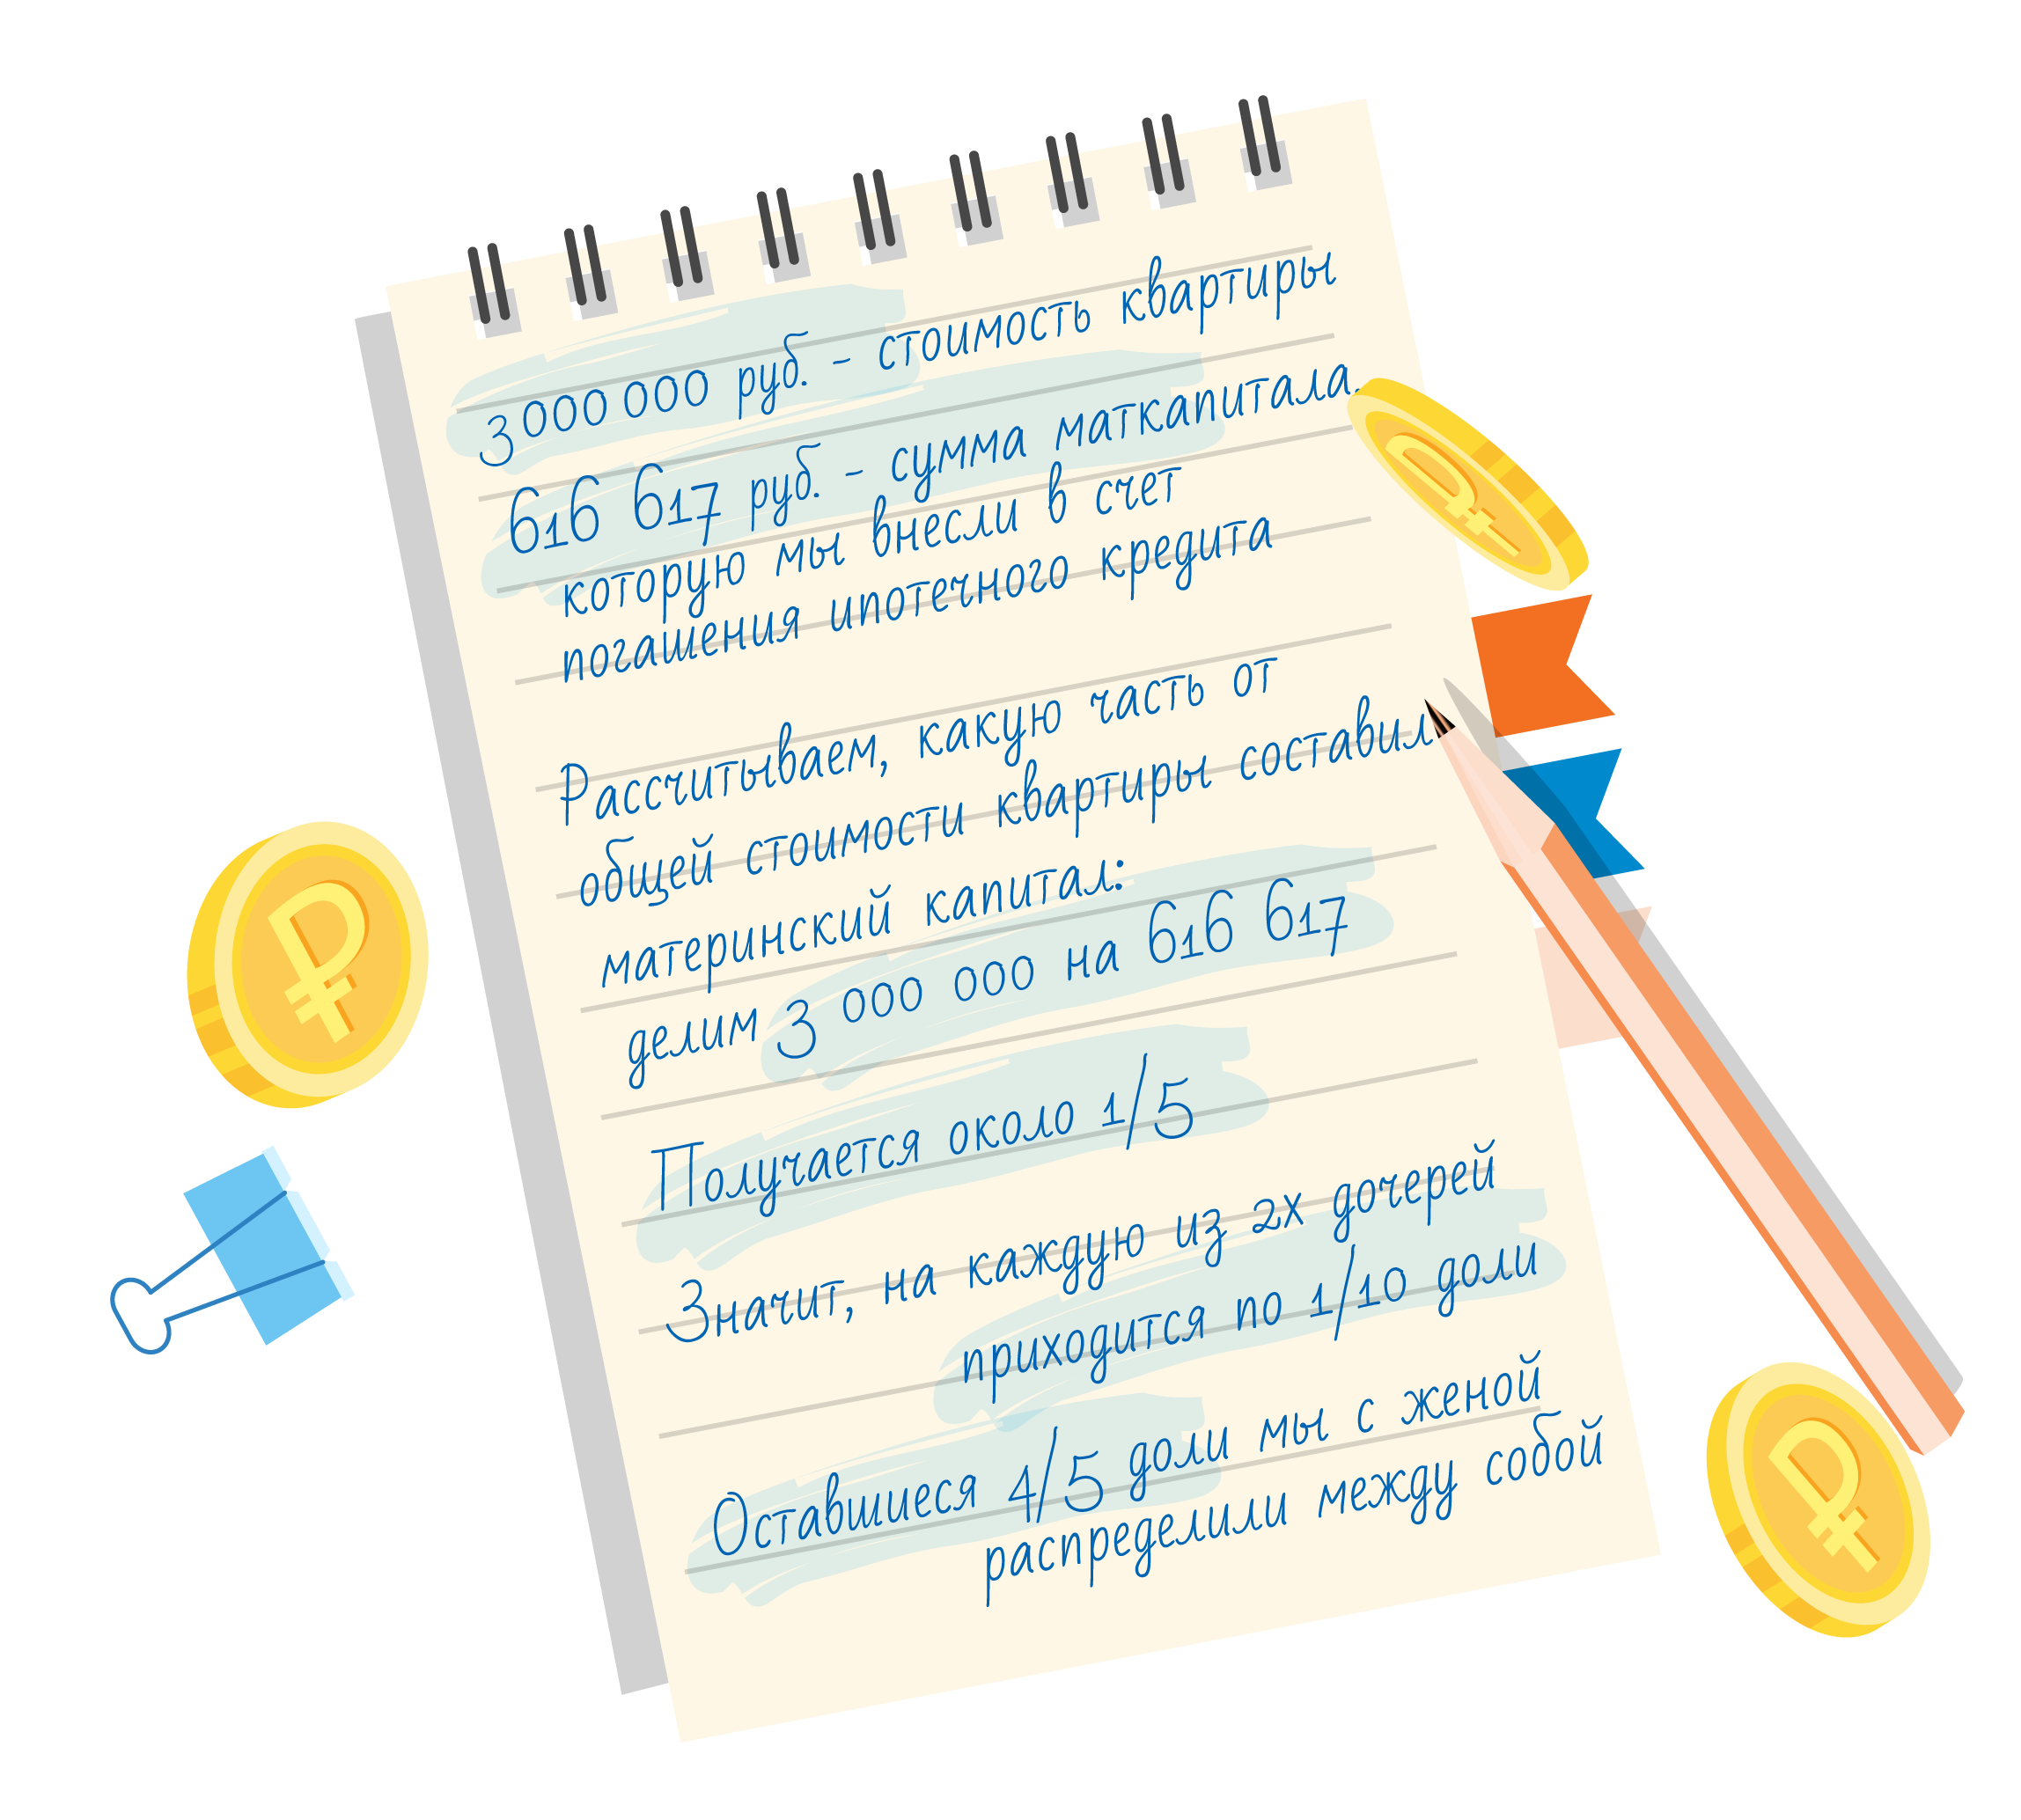 3 000 000 руб. - стоимость квартиры
616 617 руб. - сумма маткапитала,
которую мы внесли в счет
погашения ипотечного кредита
Рассчитываем, какую часть от
общей стоимости квартиры составил
материнский капитал:
делим 3 000 000 на 616 617
Получается около 1/5
Значит, на каждую из 2х дочерей
приходится по 1/10 доли
Оставшиеся 4/5 доли мы с женой
распределили между собой